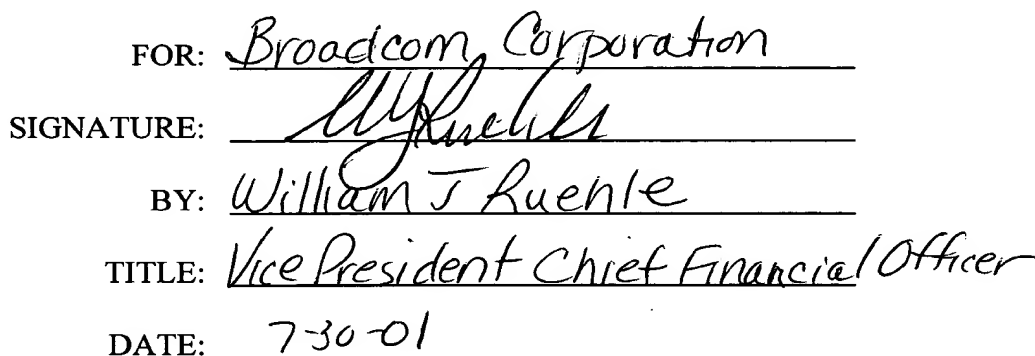 FOR: Broadcom Corporation
SIGNATURE: WJRuehle
BY: William J Ruehle
TITLE: Vice President Chief Financial Officer
DATE: 7-30-01